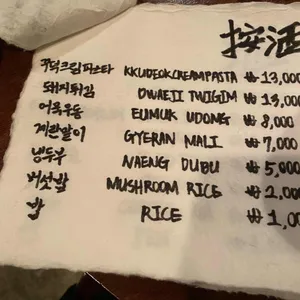 按酒
꾸덕크림파스타 KKUDEOKCREAMPASTA ₩ 13,000
돼지튀김 DWAEJI TWIGIM ₩ 13,000
어묵우동 EUMUK UDONG ₩ 8,000
계란말이 GYERAN MALI ₩ 7,000
냉두부 NAENG DUBU ₩ 5,000
버섯밥 MUSHROOM RICE ₩ 2,000
밥 RICE ₩ 1,00